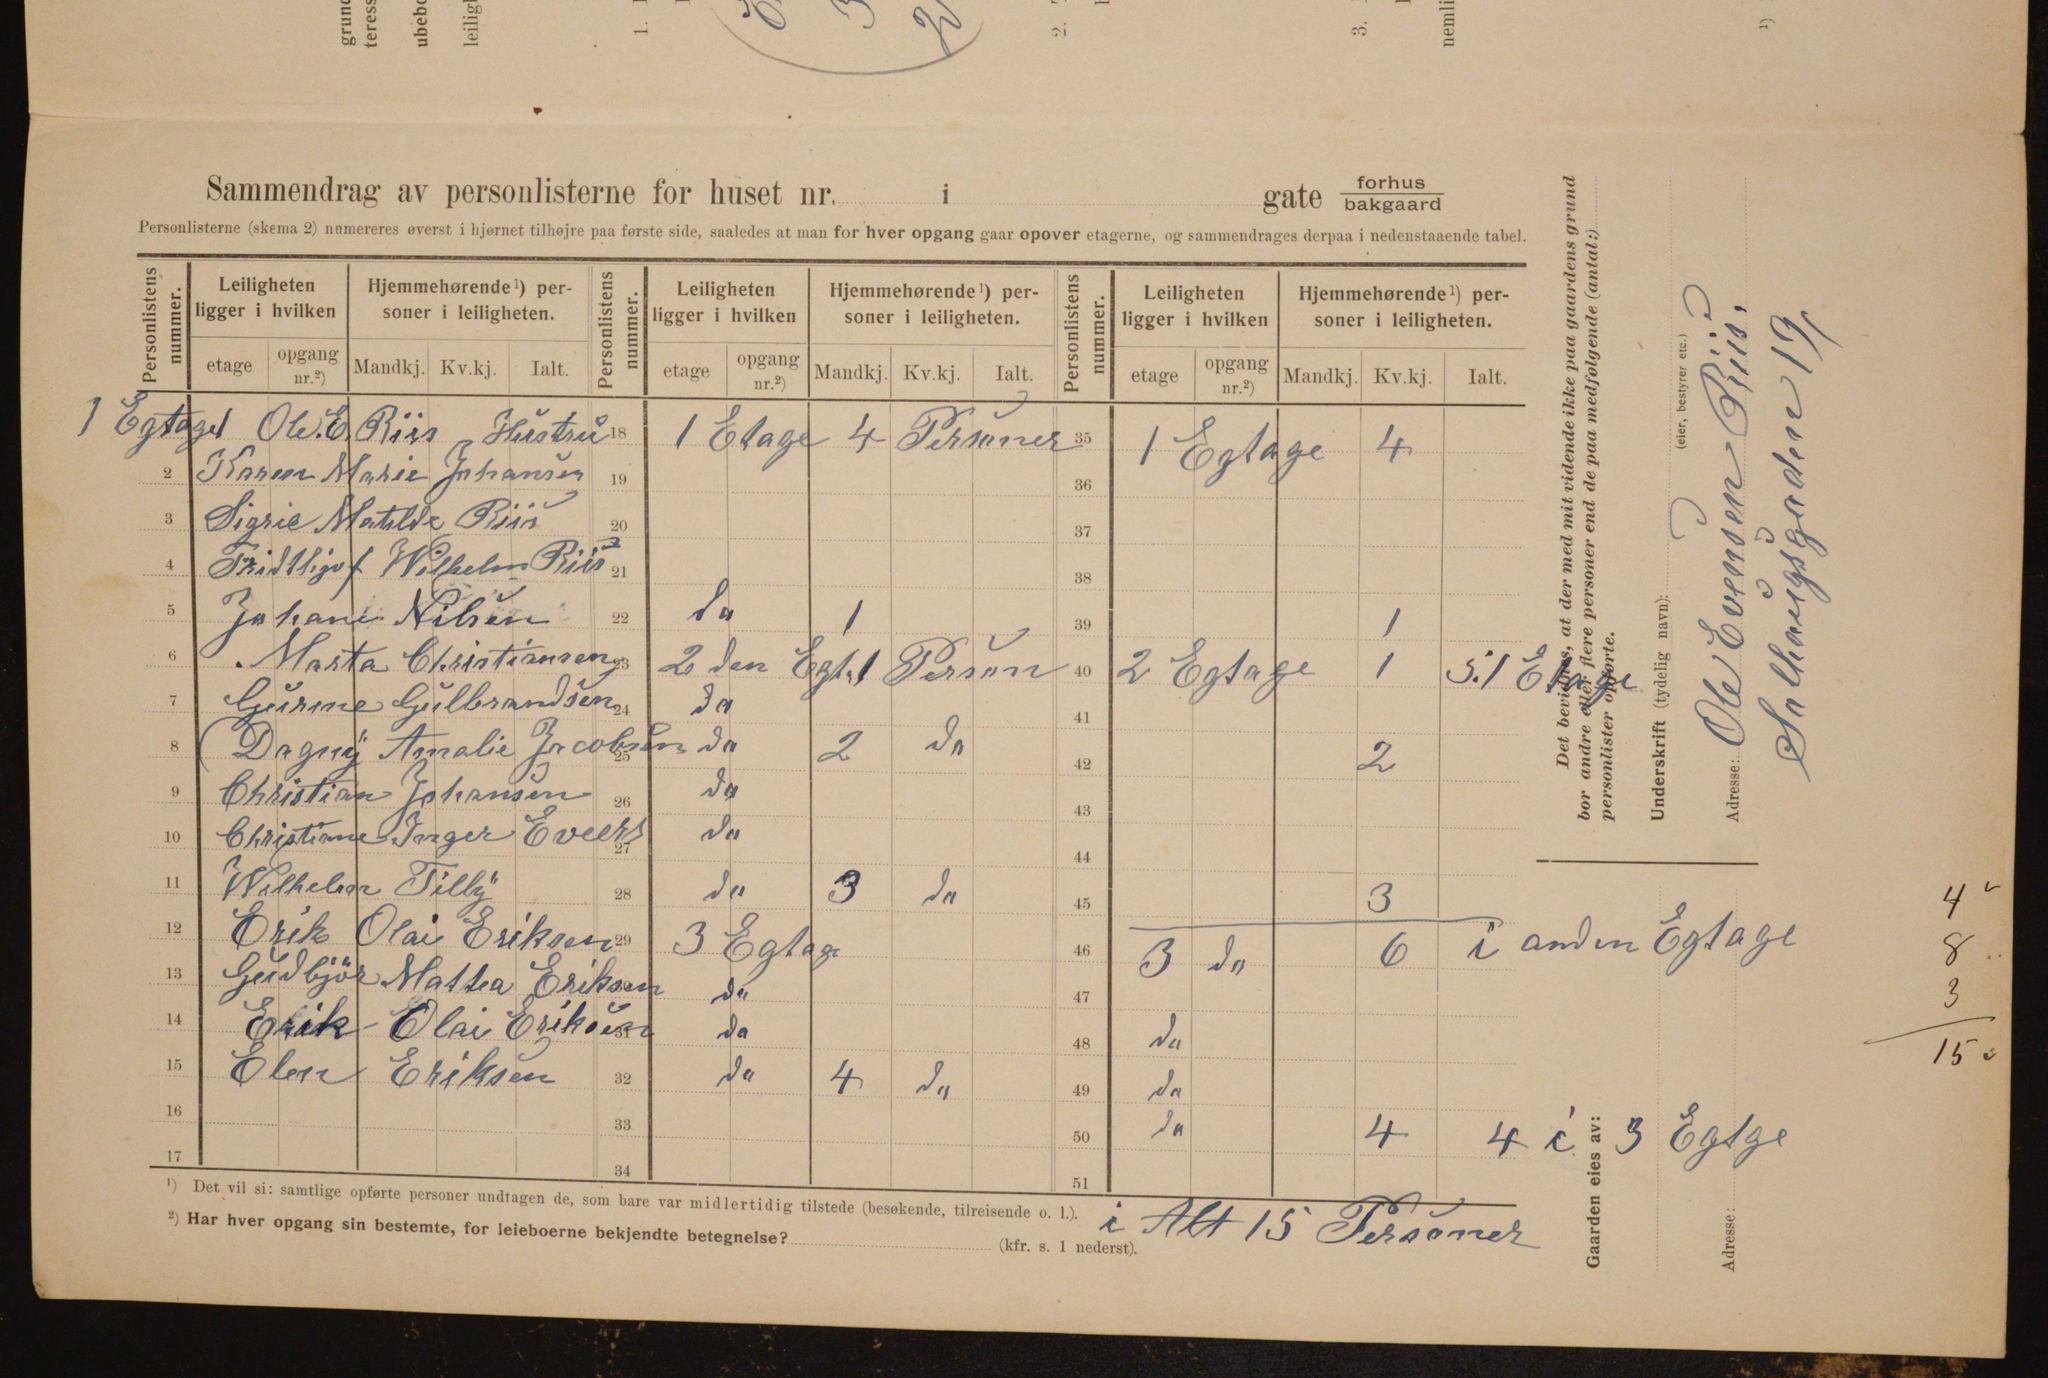 grund
teress
ubebo
leiligh
1.
3
2
2.
3.
nemli
1)
Sammendrag av personlisterne for huset nr. i gate forhus bakgaard
Personlisterne (skema 2) numereres øverst i hjørnet tilhøjre paa første side, saaledes at man for hver opgang gaar opover etagerne, og sammendrages derpaa i nedenstaaende tabel.
Personlistens nummer. Leiligheten ligger i hvilken Hjemmehørende¹) personer i leiligheten. Personlistens nummer. Leiligheten ligger i hvilken Hjemmehørende¹) personer i leiligheten. Personlistens nummer. Leiligheten ligger i hvilken Hjemmehørende¹) personer i leiligheten.
etage opgang nr.²) Mandkj. Kv.kj. Ialt. etage opgang nr.²) Mandkj. Kv.kj. Ialt. etage opgang nr.²) Mandkj. Kv.kj. Ialt.
1 Egtage 1 Ole. E. Riis Hustru 18 1 Etage 4 Personer 35 1 Egtage 4
2 Karen Marie Johansen 19 36
3 Sigrie Matilde Riis 20 37
4 Fridthjof Wilhelm Riis 21 38
5 Johane Nilsen 22 da 1 39 1
6 Marta Christiansen 23 2 den Egt. 1 Person 40 2 Egtage 1 5. 1 Etage
7 Gurine Gulbrandsen 24 da 41
8 Dagny Amalie Jacobsen 25 da 2 da 42 2
9 Christian Johansen 26 da 43
10 Christiane Inger Eveers 27 da 44
11 Wilhelm Tilly 28 da 3 da 45 3
12 Erik Olai Eriksen 29 3 Egtage 46 3 da 6 i anden Egtage
13 Gudbjör Mattea Eriksen da 47
14 Erik Olai Eriksen 31 da 48 da
15 Elen Eriksen 32 da 4 da 49 da
16 33 50 da 4 4 i 3 Egtge
17 34 51
¹) Det vil si: samtlige opførte personer undtagen de, som bare var midlertidig tilstede (besøkende, tilreisende o. l.).
i Alt 15 Personer
²) Har hver opgang sin bestemte, for leieboerne bekjendte betegnelse? (kfr. s. 1 nederst).
Det bevidnes, at der med mit vidende ikke paa gaardens grund
bor andre eller flere personer end de paa medfølgende (antal:)
personlister opførte.
Underskrift (tydelig navn): (eier, bestyrer etc.)
Ole Evensen Riis,
Adresse:
Solhaugsgaden 19
Gaarden eies av:
Adresse:
4
8
3
15